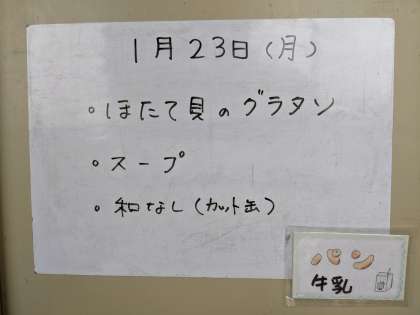 1月23日(月)
。ほたて貝のグラタン
。スープ
。和なし(カット缶)
パン
牛乳